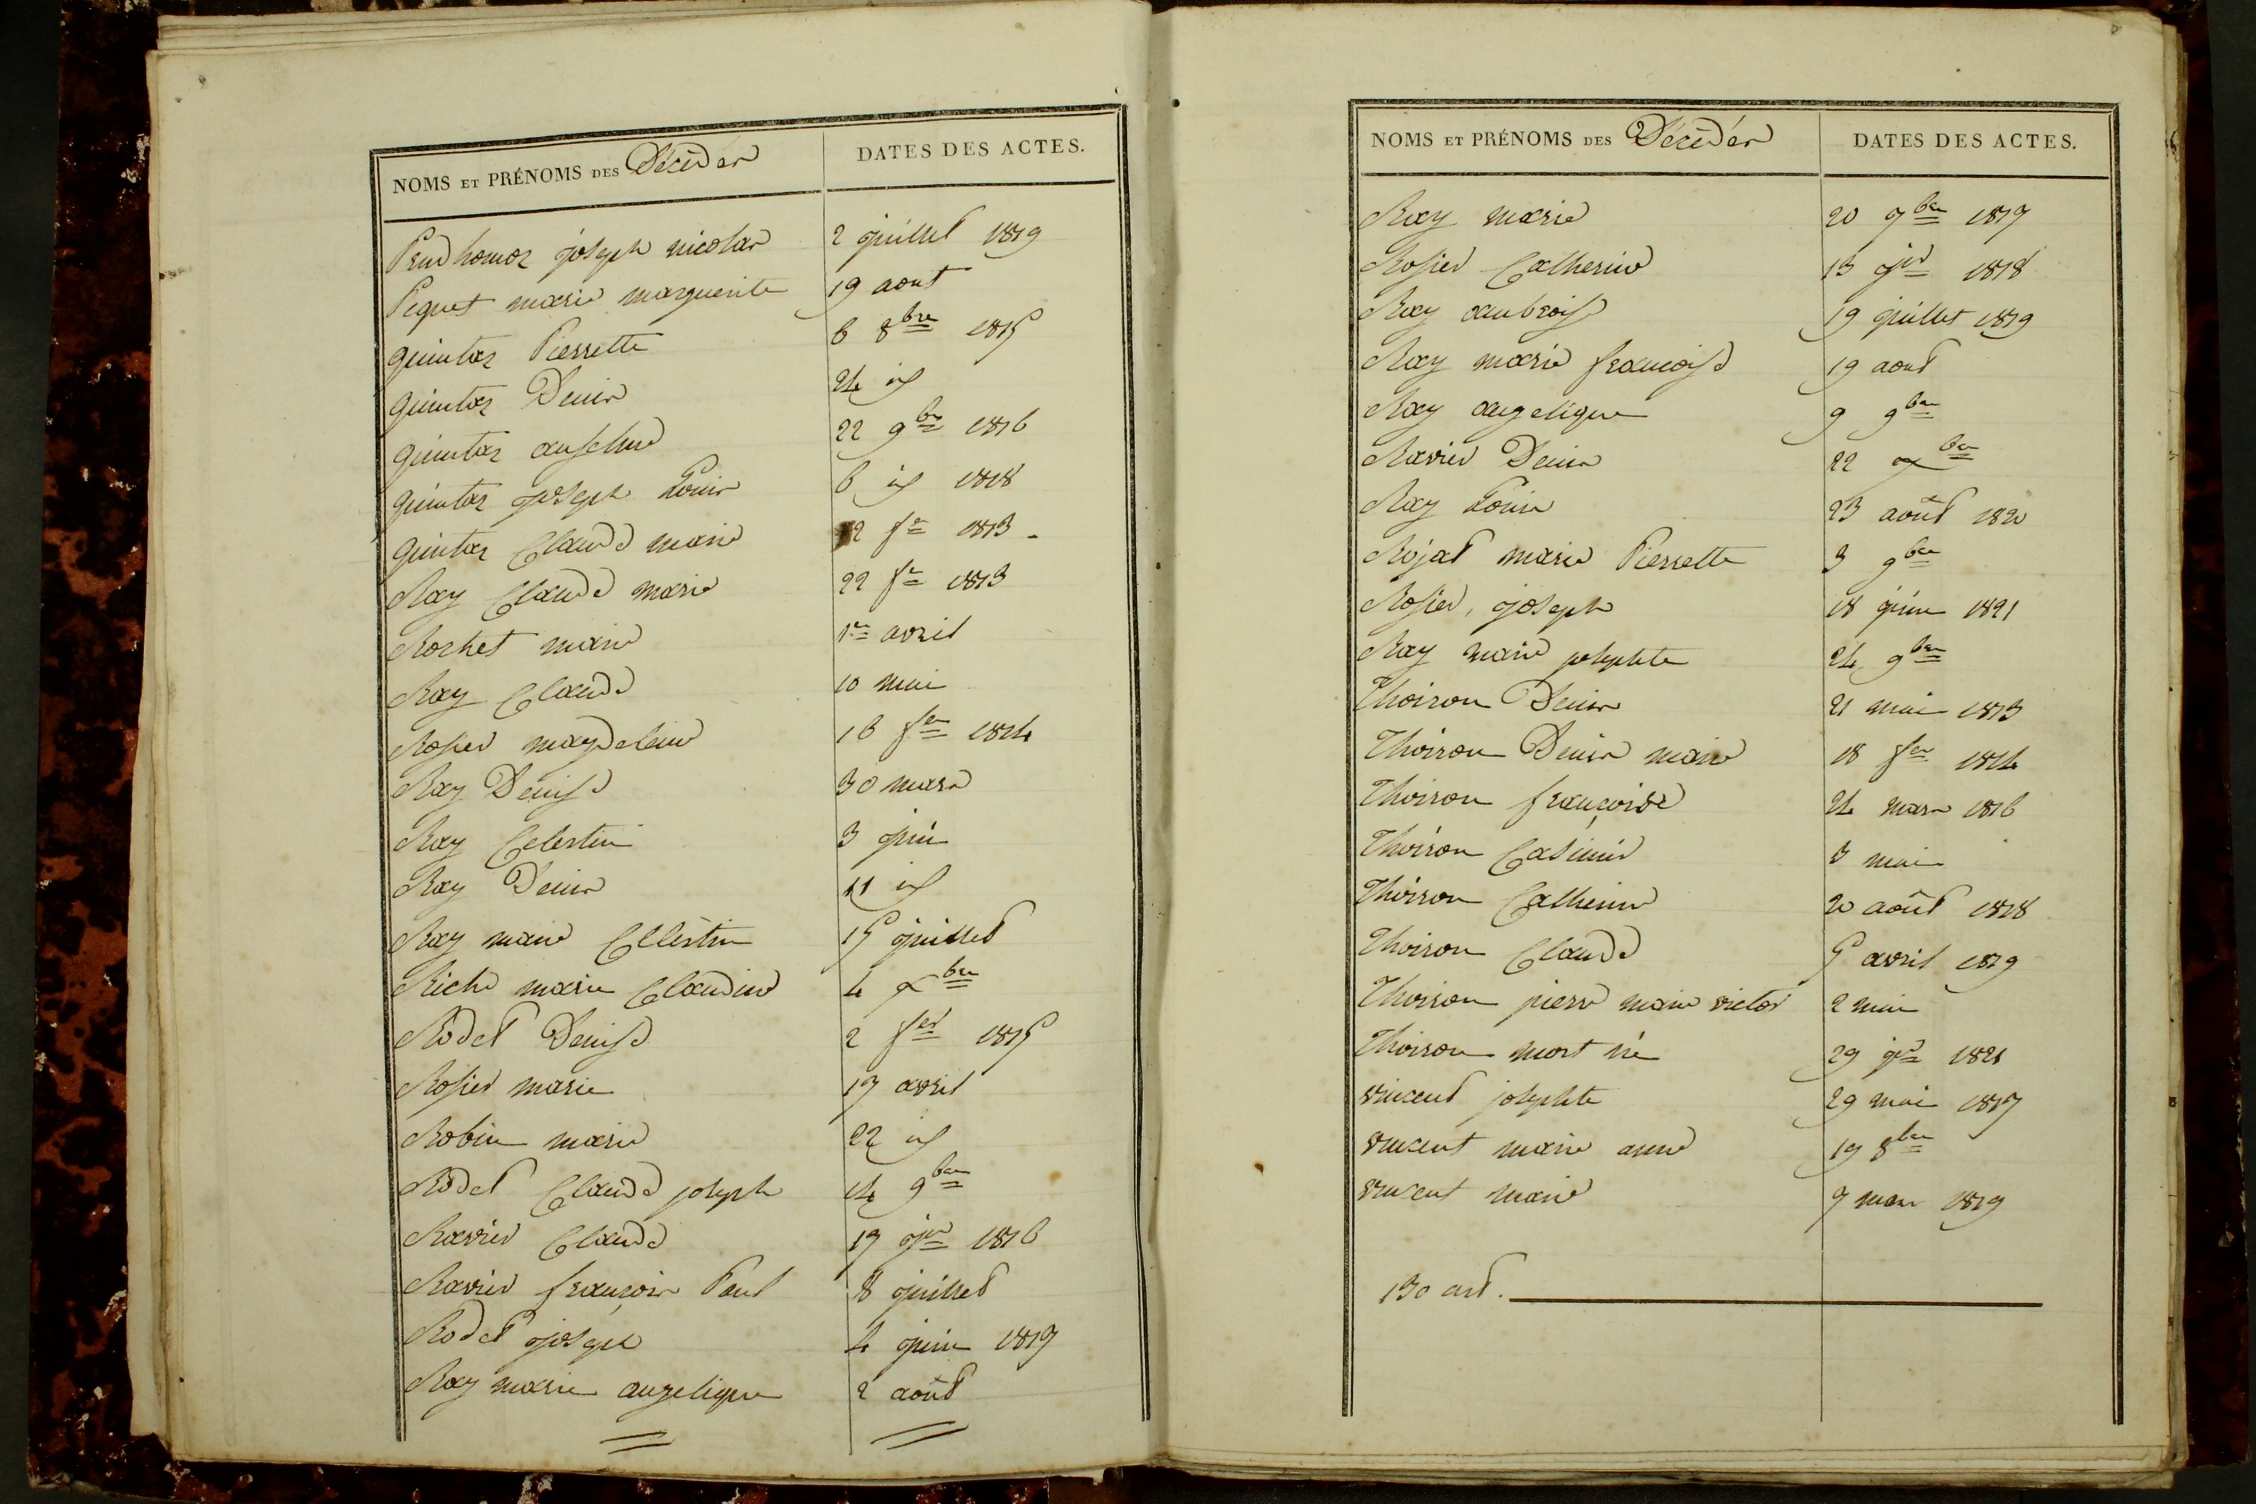 NOMS ET PRÉNOMS DES Décédés DATES DES ACTES.
Prudhomoz joseph nicolas 2 juillet 1819
Piquet marie marguerite 19 aout
quintaz Pierrette 6 8bre 1815
quintaz Denis 24 id
quintaz anselme 22 9bre 1816
quintaz joseph Louis 6 id 1818
quintaz Claude marie 12 fer 1813
Ray Claude marie 22 fer 1813
Rochet marie 1er avril
Ray Claude 10 mai
Rosier magdelaine 16 fer 1814
Ray Denise 30 mars
Ray Celestin 3 juin
Ray Denis 11 id
Ray marie Célestin 15 juillet
Riche marie Claudine 4 xbre
Rodet Denise 2 fer 1815
Rosier marie 17 avril
Robin marie 22 id
Rodet Claude joseph 14 9bre
Ravier Claude 17 jer 1816
Ravier françois Paul 8 juillet
Rodet joseph 4 juin 1817
Ray marie angelique 2 août
NOMS ET PRÉNOMS DES Décédés DATES DES ACTES.
Ray marie 20 7bre 1817
Rosier Catherine 13 jer 1818
Ray ambrois 19 juillet 1819
Ray marie françoise 19 aout
Ray angelique 9 9bre
Ravier Denis 22 xbre
Ray Louis 23 août 1820
Rojat marie Pierrette 3 9bre
Rosier, joseph 18 juin 1821
Ray marie josephte 24 9bre
Thoiron Denis 21 mai 1813
Thoiron Denis marie 18 fer 1814
Thoiron françoise 24 mars 1816
Thoiron Casimir 3 mai
Thoiron Catherine 20 août 1818
Thoiron Claude 5 avril 1819
Thoiron pierre marie victor 2 mai
Thoiron mort né 29 jer 1821
vincent josephte 29 mai 1817
vincent marie anne 19 8bre
vincent marie 7 mars 1819
130 art.